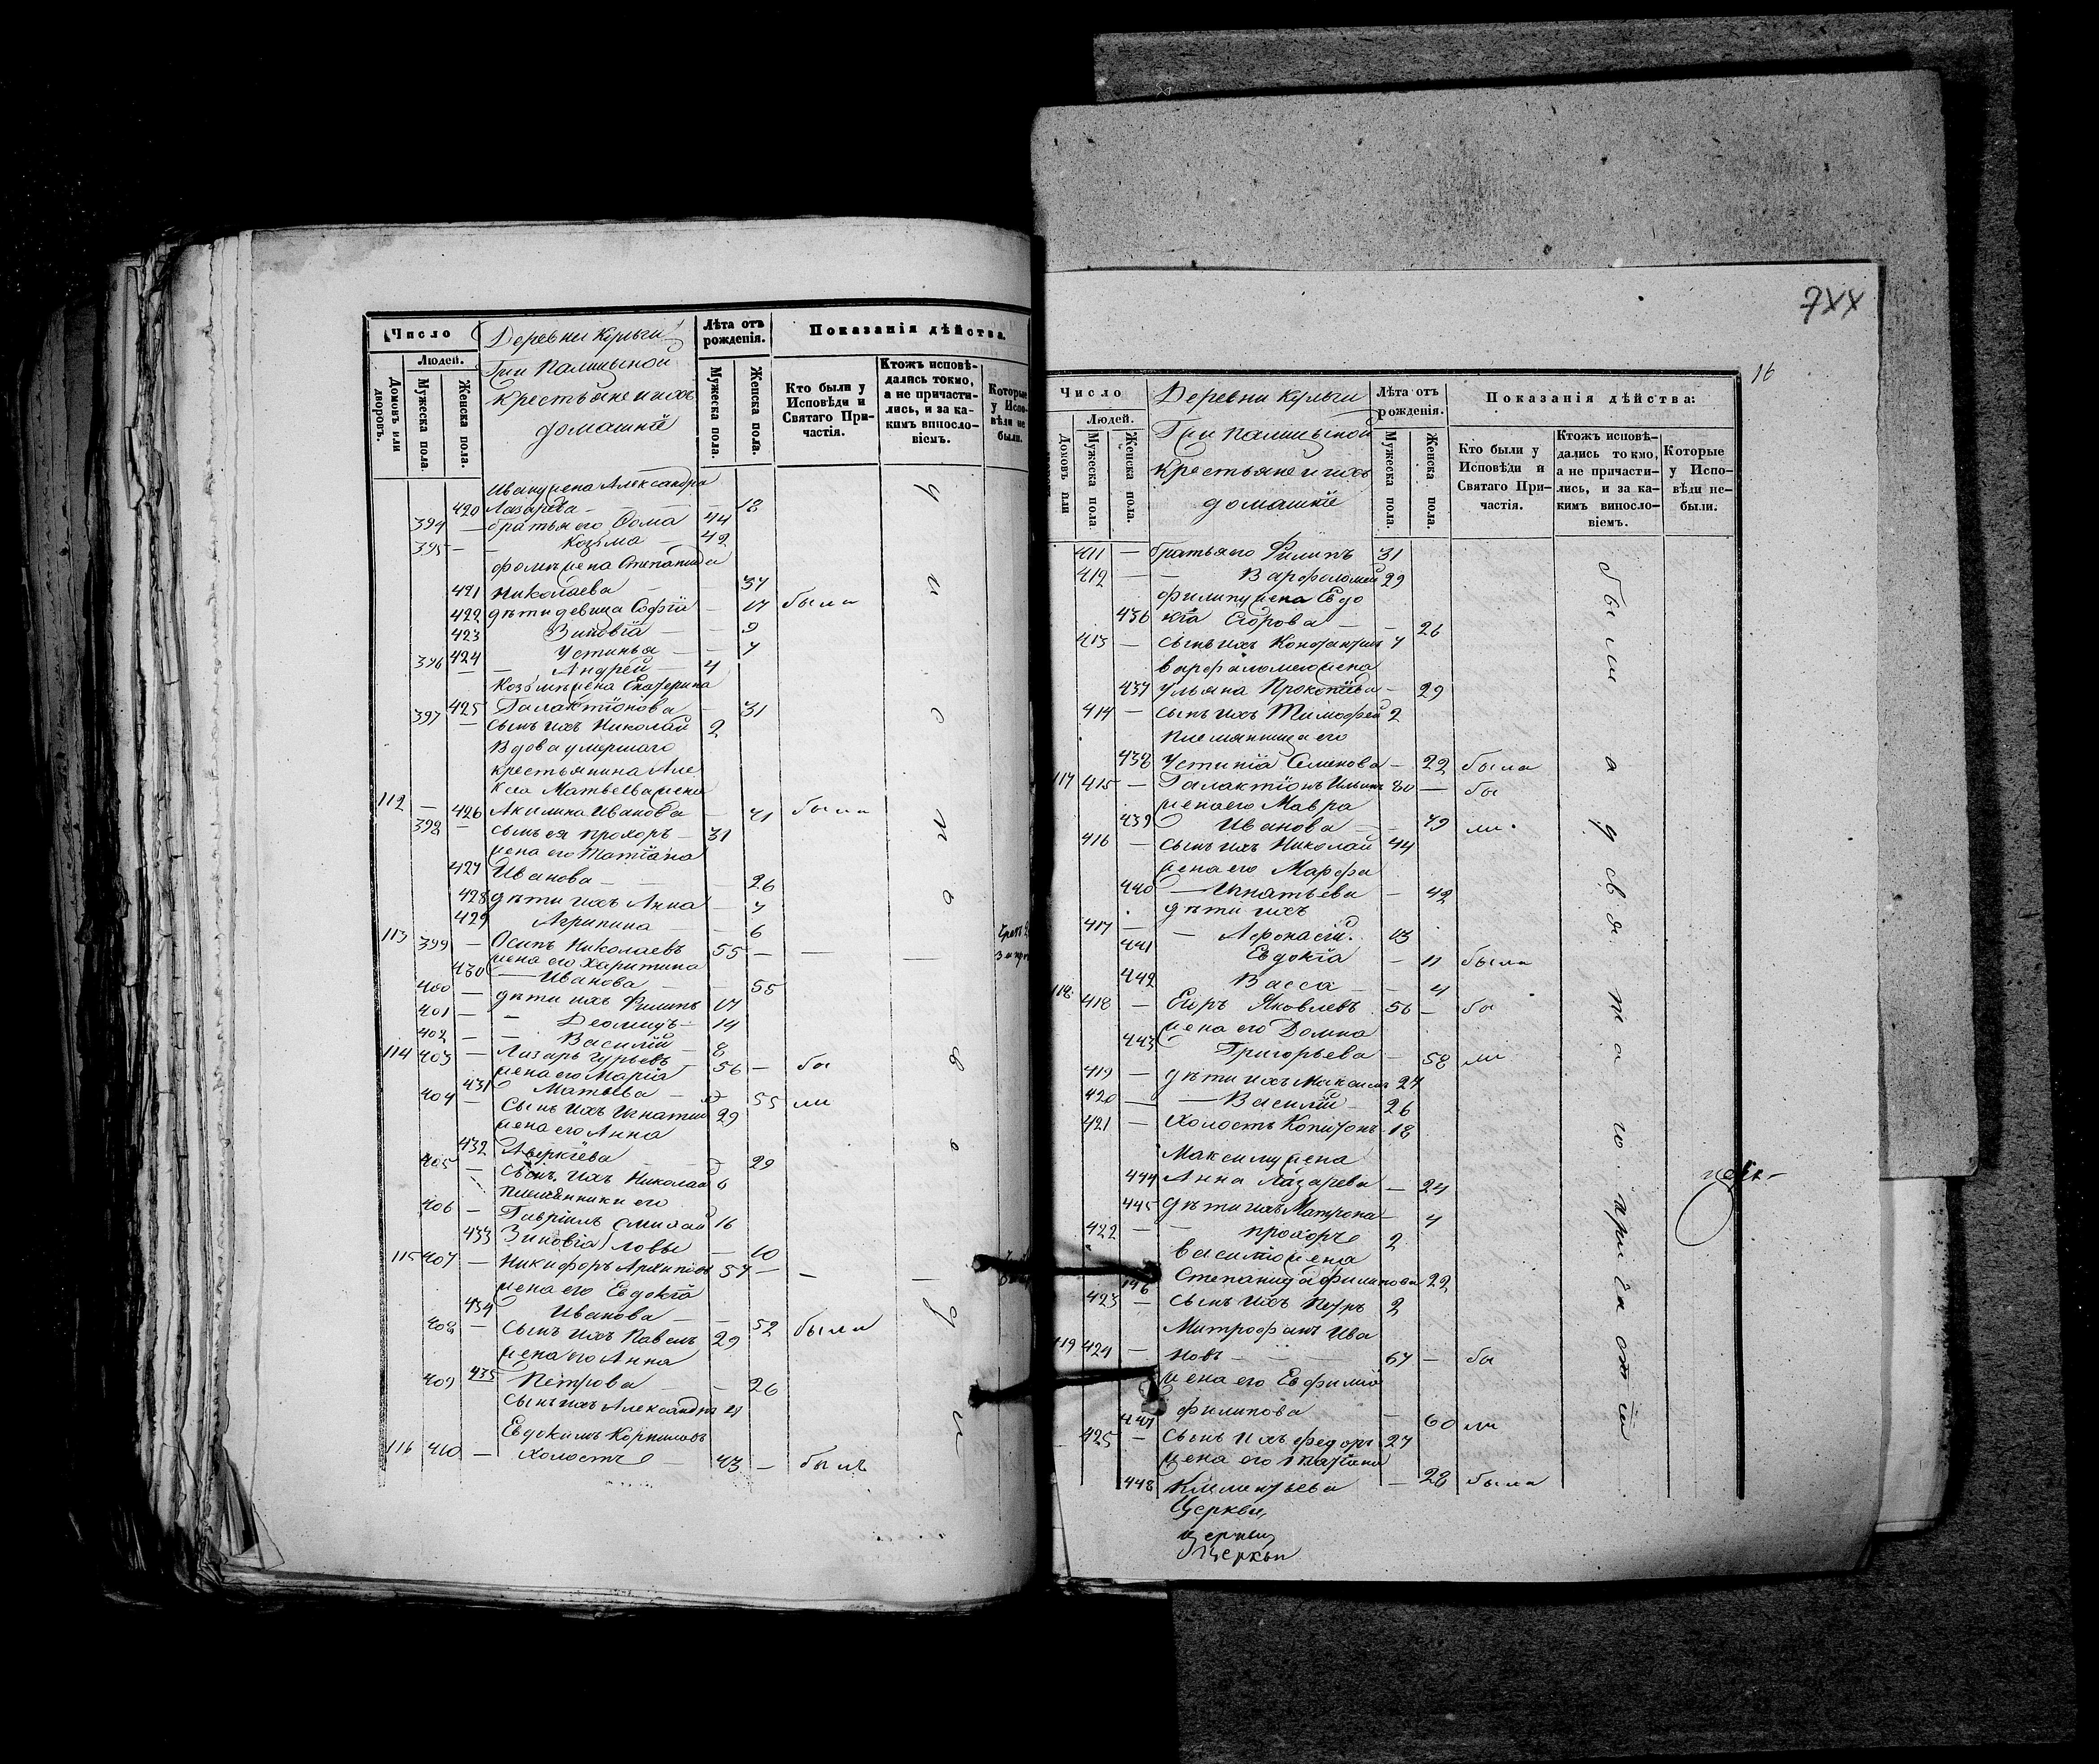 Число
Людей.
Домовъ или дворовъ.
Мужеска пола.
Женска пола.
Деревни Кульги
Гпи Палицыной
крестьяне и ихъ
домашніе
Лѣта отъ рожденія.
Мужеска пола.
Женска пола.
Показанія дѣйства.
Кто были у Исповѣди и Святаго Причастія.
Ктожъ исповѣдались токмо, а не причастились, и за какимъ винословіемъ.
Которые у Исповѣди не были.
Ивану жена Александра
420 Лазарева — 18
394 — братья его Фома 44
395 — — Козьма — 42
Фоmы жена Степанида
421 Николаева — 37
422 дѣти девица Софія — 17 была
423 Зиновія — — 9
424 Устинья — — 7
396 — Андрей — 4
Козьмы жена Екатерина
425 Галактіонова — 31
397 — сынъ ихъ Николай 2
Вдова умершаго
крестьянина Але
ксея Матвеева жена
112 — 426 Акилина Иванова — 71 была
398 — сынъ ея Прохоръ — 31
жена его Татіана
427 Иванова — — 26
428 дѣти ихъ Анна — 7
429 Агрипина — 6
113 399 — Осипъ Николаевъ 55 — —
жена его Харитина
430 — Иванова — — 55
400 — дѣти ихъ Филипъ 17
401 — — Деомидъ — 14
402 — — Василій — 8
114 403 — Лазарь Гурьевъ 56 — бы
жена его Марія
431 Матвева — 55 ли
404 — Сынъ ихъ Игнатій 29
жена его Анна
432 Аверкіева — 29
405 — сынъ ихъ Николай 6
племянники его
406 — Гавріилъ Смирай 16
433 Зиновія ловы — 10
115 407 — Никифоръ Архиповъ 57 — —
жена его Евдокія
434 Иванова — — 52 были
408 — сынъ ихъ Павелъ 29
жена его Анна
435 Петрова — — 26
409 сынъ ихъ Александръ 4
Евдокимъ Корниловъ
116 410 — холостъ — 43 — былъ
у и с п о в ѣ д и
7XX
16
Число
Людей.
Домовъ или
Мужеска пола
Женска пола.
Деревни Кульги
Гпи Палицыной
крестьяне и ихъ
домашніе
Лѣта отъ рожденія.
Мужеска пола.
Женска пола.
Показанія дѣйства:
Кто были у Исповѣди и Святаго Причастія.
Ктожъ исповѣдались токмо, а не причастились, и за какимъ винословіемъ.
Которые у Исповѣди небыли.
411 — братья его Филипъ 31
412 — — Варфоломей 29
филипу жена Евдо
436 кія Егорова — — 26
413 — сынъ ихъ Константинъ 7
варфаломею жена
437 Ульяна Прокопіева — 29
414 — сынъ ихъ Тимофей 2
племянница его
438 Устинія Семенова — 22 была
117 415 — Галактіонъ Ильинъ 80 — бы
жена его Мавра
439 Иванова — — 79 ли.
416 — сынъ ихъ Николай 44
жена его Марфа
440 — Игнатьева — 42
дѣти ихъ
417 — — Афонасій. 13
441 Евдокія — 11 были
442 Васса — — 4
118 418 — Егоръ Яковлевъ 56 — бы
жена его Домна
443 Григорьева — 58 ли
419 — дѣти ихъ Максимъ 27
420 — — Василій — 26
421 — Холостъ Копитонъ 18
Максиму жена
444 Анна Лазарева — 24
445 дѣти ихъ Матрона — 4
422 — — прохоръ 2
василію жена
446 Степанида филипова 22
423 — сынъ ихъ Петръ 2
Митрофанъ Ива
119 424 — новъ — — — 67 — бы
жена его Евфимія
447 филипова — 60 ли
425 — сынъ ихъ федоръ 27
жена его Татіана
448 Клементьева — 28 была
были а у святаго причастія
церк-
Церкви,
церкви,
Церкви